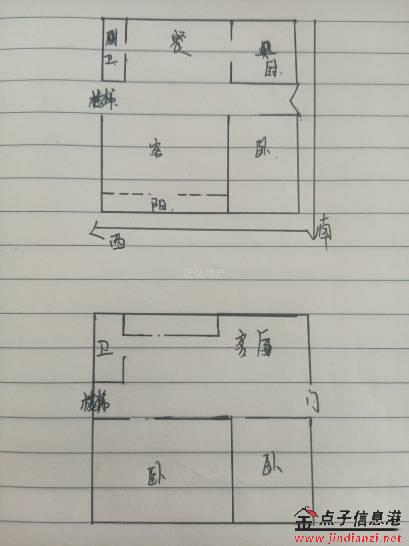 厕
卫
餐
厨
楼梯
客
卧
阳
西
南
卫
客厅
楼梯
门
卧
卧
金点子信息港
www.jindianzi.net